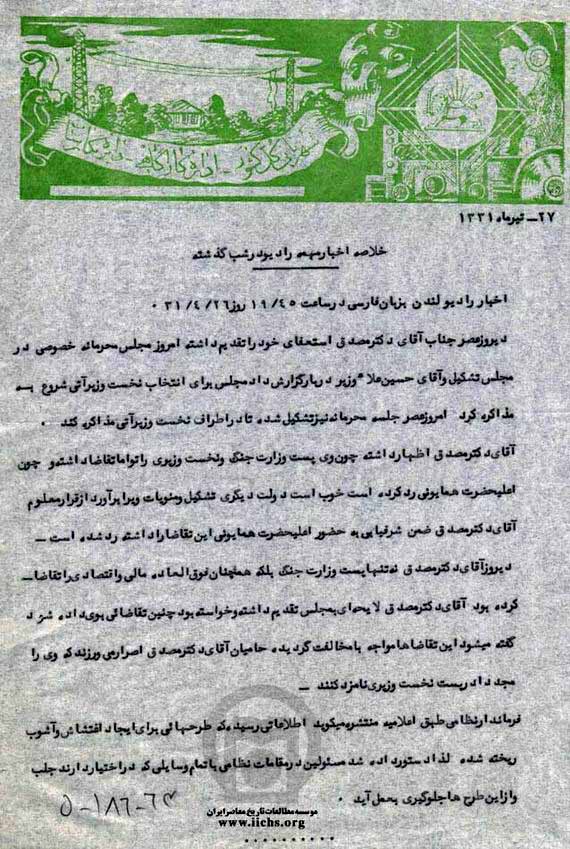 شهربانی کل کشور - اداره کارآگاهی - دایره
۲۷ــ تیرماه ۱۳۳۱
خلاصه اخبار مهمه رادیو در شب گذشته
اخبار رادیو لندن بزبان فارسی در ساعت ۱۹/۴۵ روز ۳۱/۴/۲۶ ۰
دیروز عصر جناب آقای دکتر مصدق استعفای خود را تقدیم داشته امروز مجلس محرمانه خصوصی در
مجلس تشکیل و آقای حسین علاء وزیر دربار گزارش داد مجلس برای انتخاب نخست وزیر آتی شروع به
مذاکره کرد امروز عصر جلسه محرمانه نیز تشکیل شده تا در اطراف نخست وزیر آتی مذاکره کند ۰
آقای دکتر مصدق اظهار داشته چون وی پست وزارت جنگ و نخست وزیری را تواما تقاضا داشته و چون
اعلیحضرت همایونی رد کرده است خوب است دولت دیگری تشکیل و منویات ویرا برآورد از قرار معلوم
آقای دکتر مصدق ضمن شرفیابی به حضور اعلیحضرت همایونی این تقاضا را داشته رد شده است ــ
دیروز آقای دکتر مصدق نه تنها پست وزارت جنگ بلکه همچنان فوق العاده مالی و اقتصادی را تقاضاــ
کرده بود آقای دکتر مصدق لایحه‌ای بمجلس تقدیم داشته و خواسته بود چنین تقاضائی بوی داده شود
گفته میشود این تقاضاها مواجه با مخالفت گردیده حامیان آقای دکتر مصدق اصرار می ورزند که وی را
مجددا در پست نخست وزیری نامزد کنند ــ
فرماندار نظامی طبق اعلامیه منتشره میگوید اطلاعاتی رسیده که طرحهائی برای ایجاد اغتشاش و آشوب
ریخته شده لذا دستور داده شد مسئولین در مقامات نظامی با تمام وسایلی که در اختیار دارند جلب
و از این طرح ها جلوگیری بعمل آید ۰
۵-۱۸۶-۶۳
موسسه مطالعات تاریخ معاصر ایران
www.iichs.org